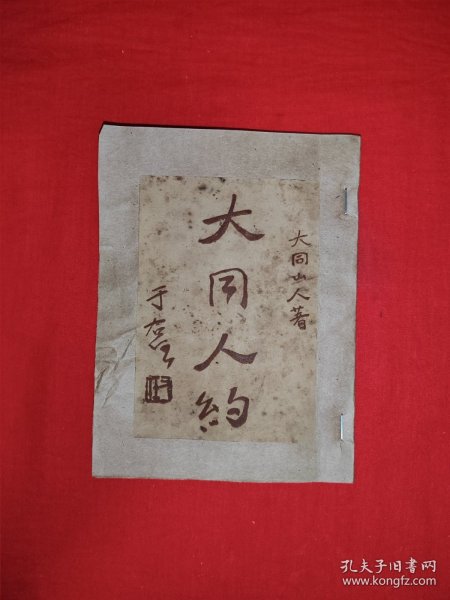 大同山人著
大同人約
于右任
孔夫子旧书网
www.kongfz.com